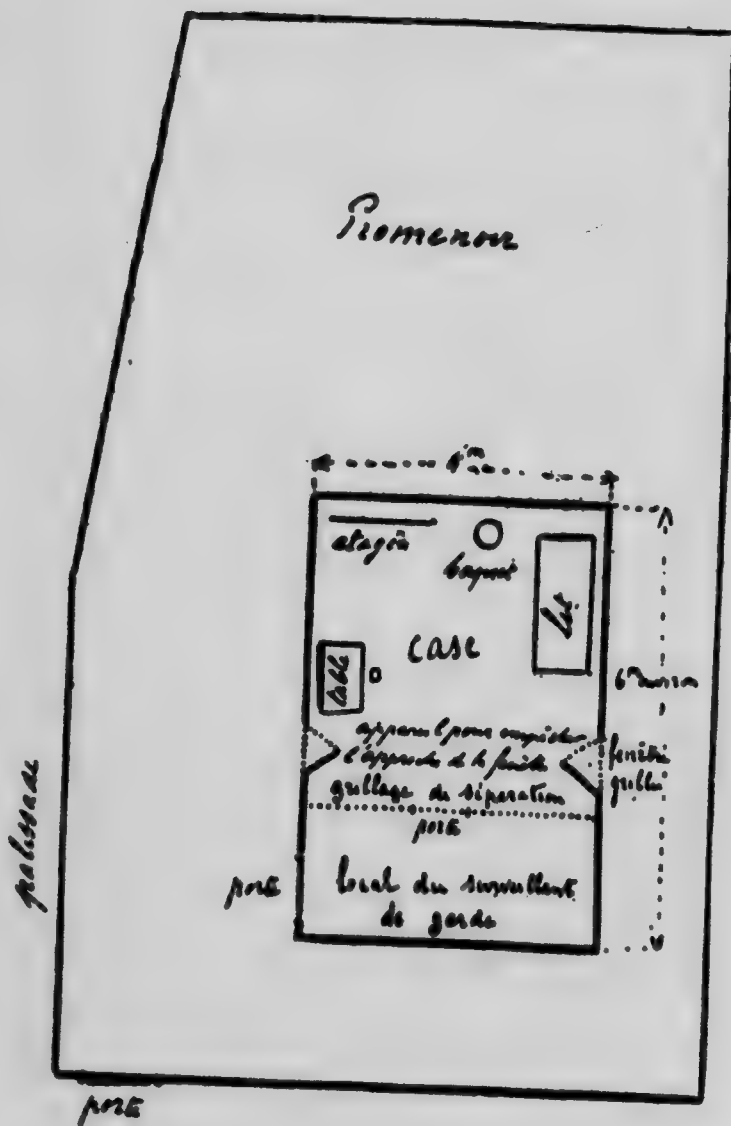 Promenoir
4m
etagère
baquet
lit
case
table
6m environ
appareil pour empêcher
l'approche de la fenêtre
fenêtre
grillée
grillage de séparation
porte
palissade
porte
local du surveillant
de garde
porte